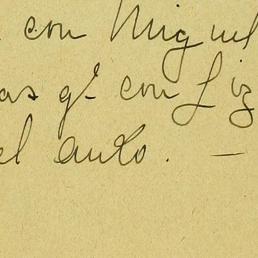 con Miguel
as qᵉ con Liz
el auto. —